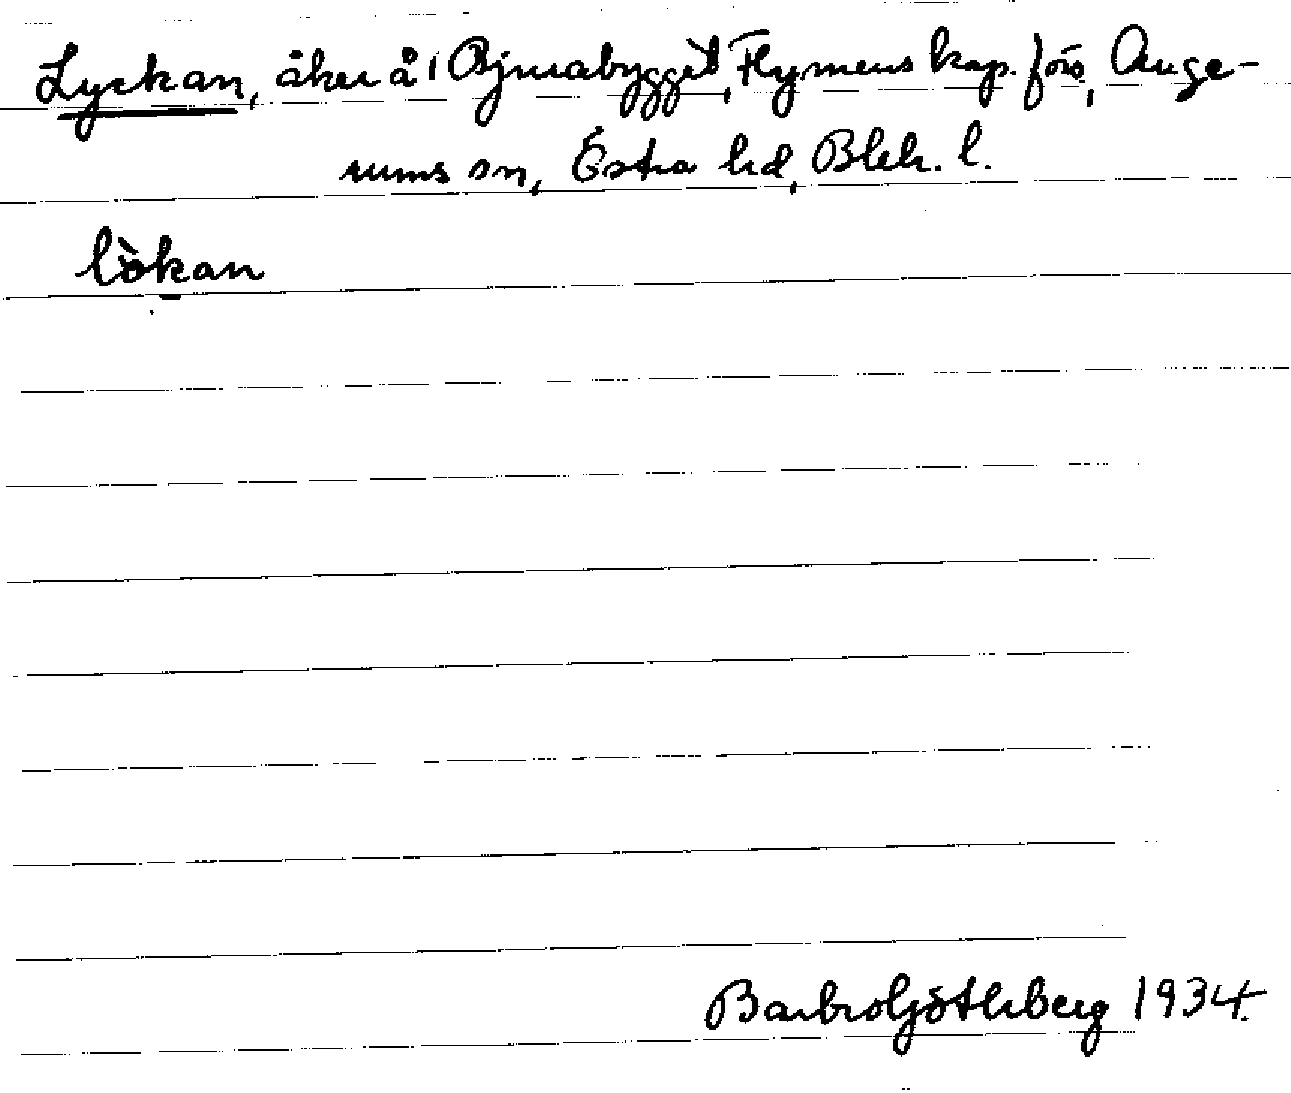 Lyckan, åker å Bjurabygget, Flymens kap. förs, Auge-
rums sn, Östra hd, Blek. l.
lòkan
Barbro Götheberg 1934.